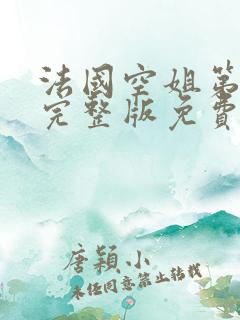 法國空姐第
完整版免費
唐穎小
未经同意禁止转载